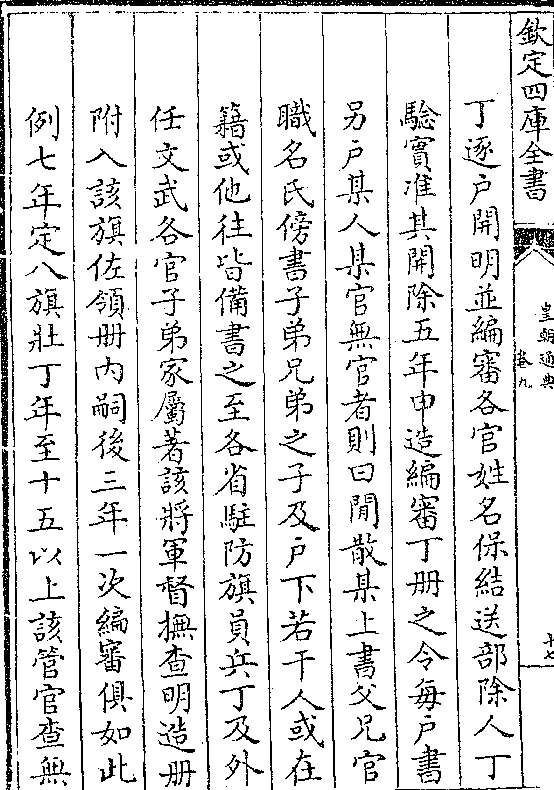 欽定四庫全書
皇朝通典
卷九
十七
丁逐户開明並編審各官姓名保結送部除人丁
驗實准其開除五年申造編審丁册之令每户書
另户某人某官無官者則曰閒散某上書父兄官
職名氏傍書子弟兄弟之子及户下若干人或在
籍或他往皆備書之至各省駐防旗員兵丁及外
任文武各官子弟家屬著該將軍督撫查明造册
附入該旗佐領册内嗣後三年一次編審俱如此
例七年定八旗壯丁年至十五以上該管官查無